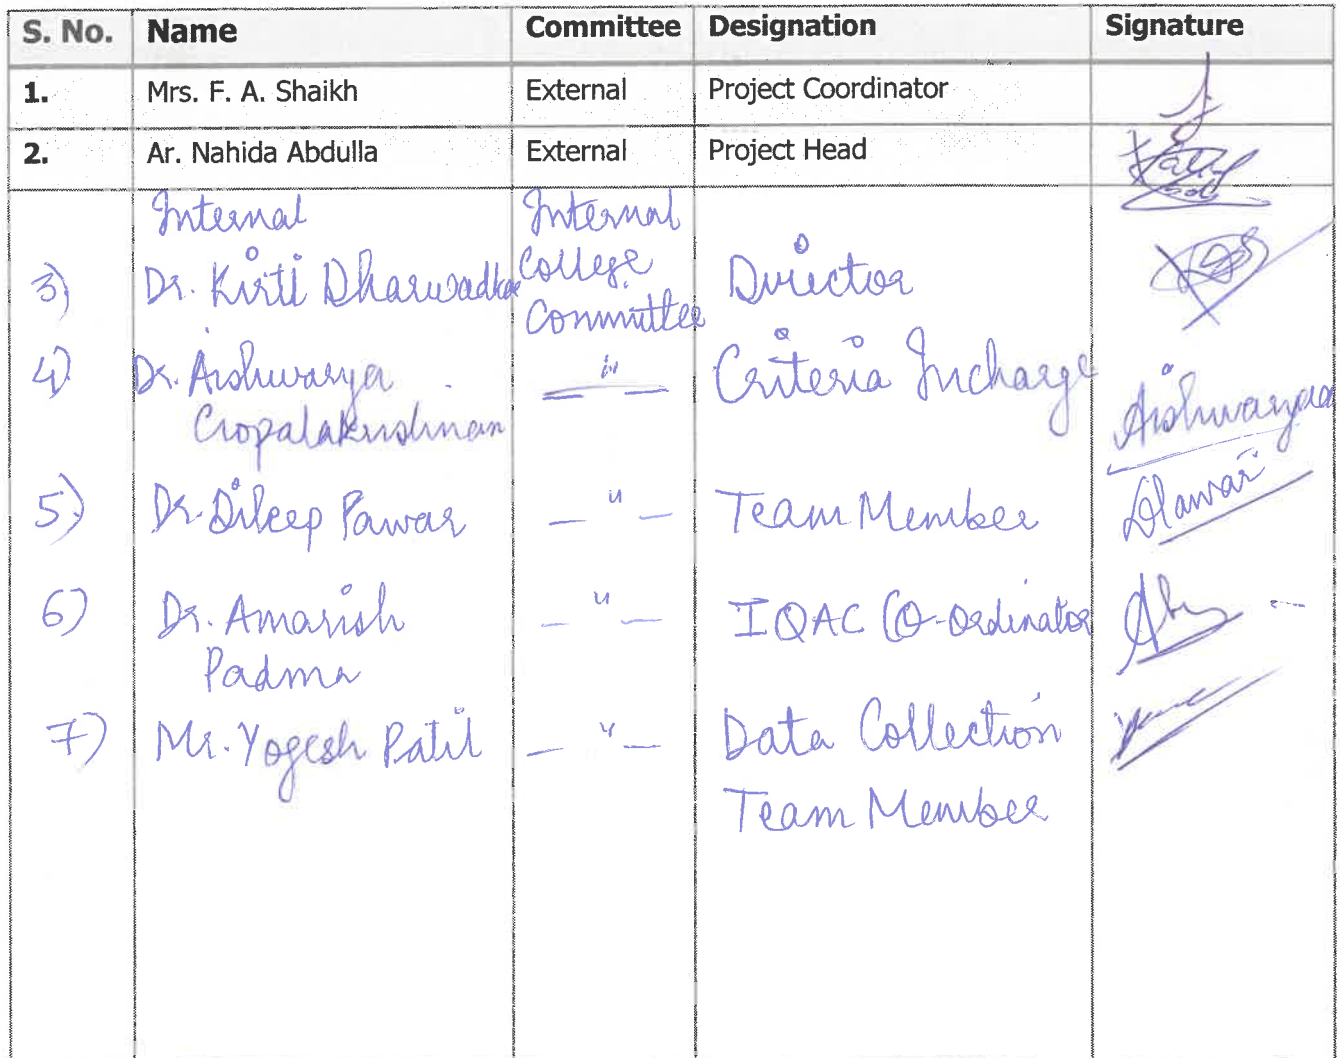 S. No. Name Committee Designation Signature
1. Mrs. F. A. Shaikh External Project Coordinator
2. Ar. Nahida Abdulla External Project Head
Internal Internal
3) Dr. Kirti Dharwadkar College Director
Committee
4) Dr. Aishwarya — " — Criteria Incharge Aishwaryaa
Gopalakrishnan
5) Dr. Dileep Pawar — " — Team Member DPawar
6) Dr. Amarish — " — IQAC CO-ordinator
Padma
7) Mr. Yogesh Patil — " — Data Collection
Team Member